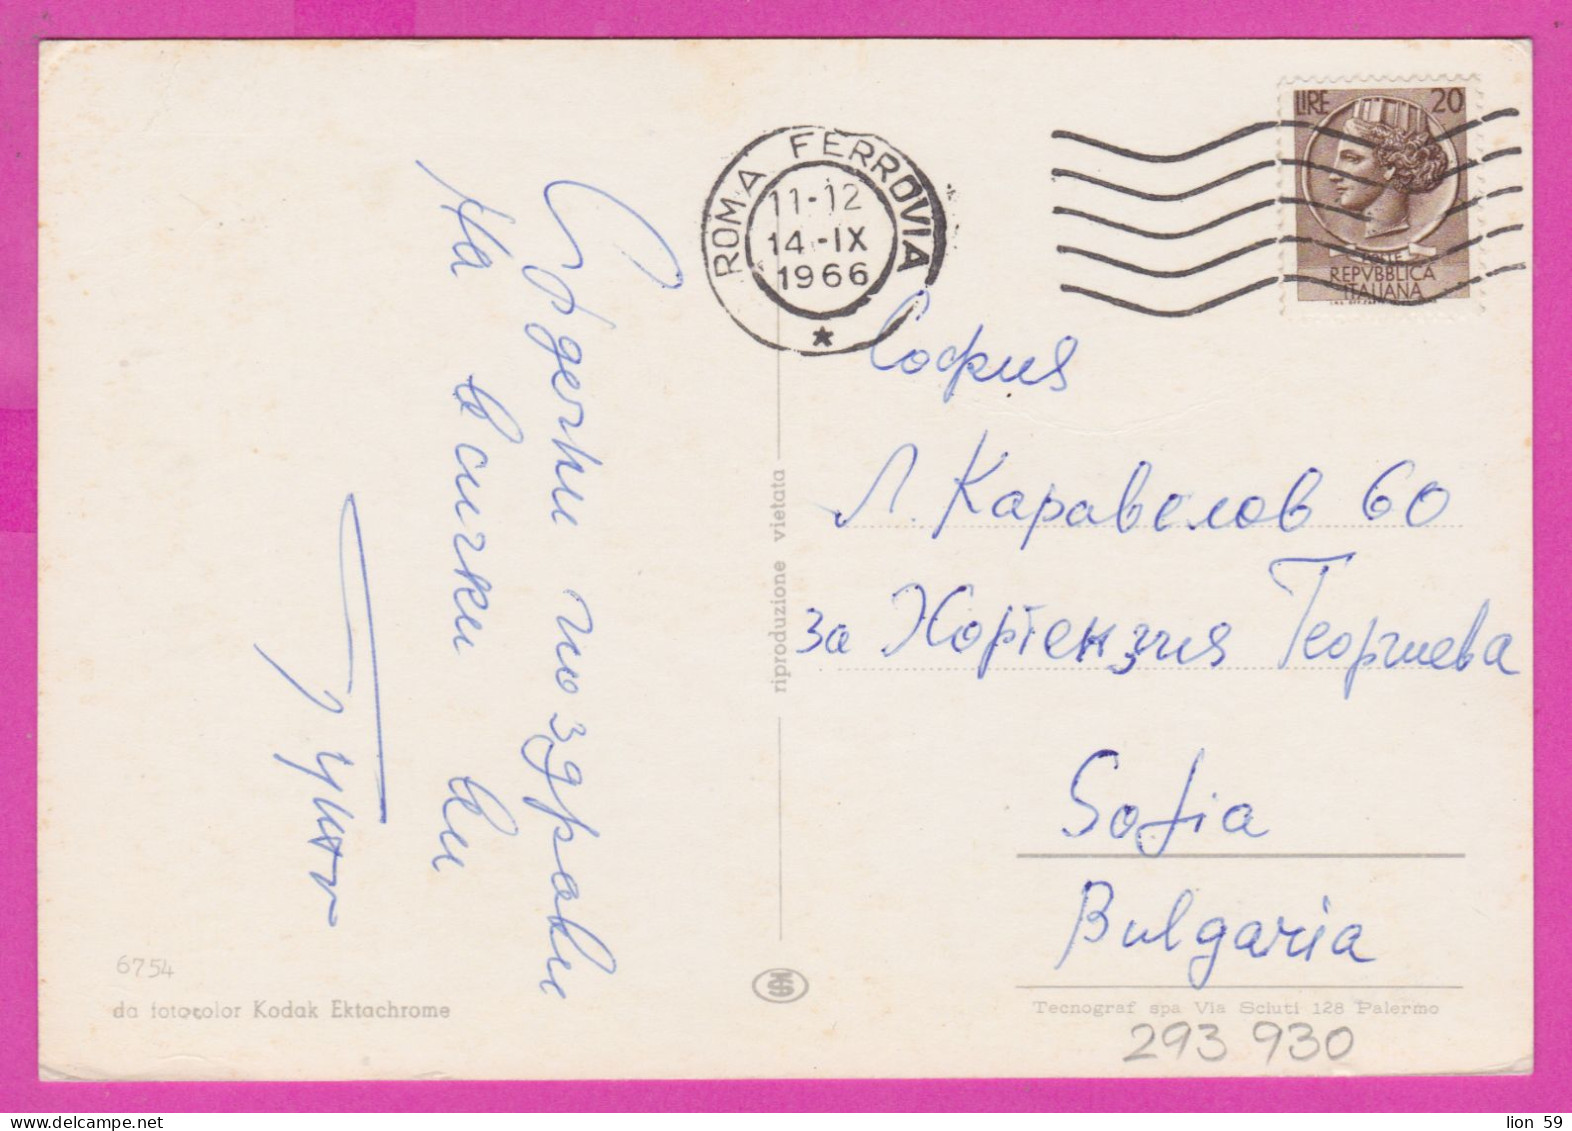 Сърдечни поздрави
на всички ви
6754
da fotocolor Kodak Ektachrome
riproduzione vietata
ROMA FERROVIA
11-12
14-IX
1966
LIRE 20
POSTE
REPVBBLICA
ITALIANA
София
Л. Каравелов 60
за Хортензия Георгиева
Sofia
Bulgaria
Tecnograf spa Via Sciuti 128 Palermo
293 930
lion 59